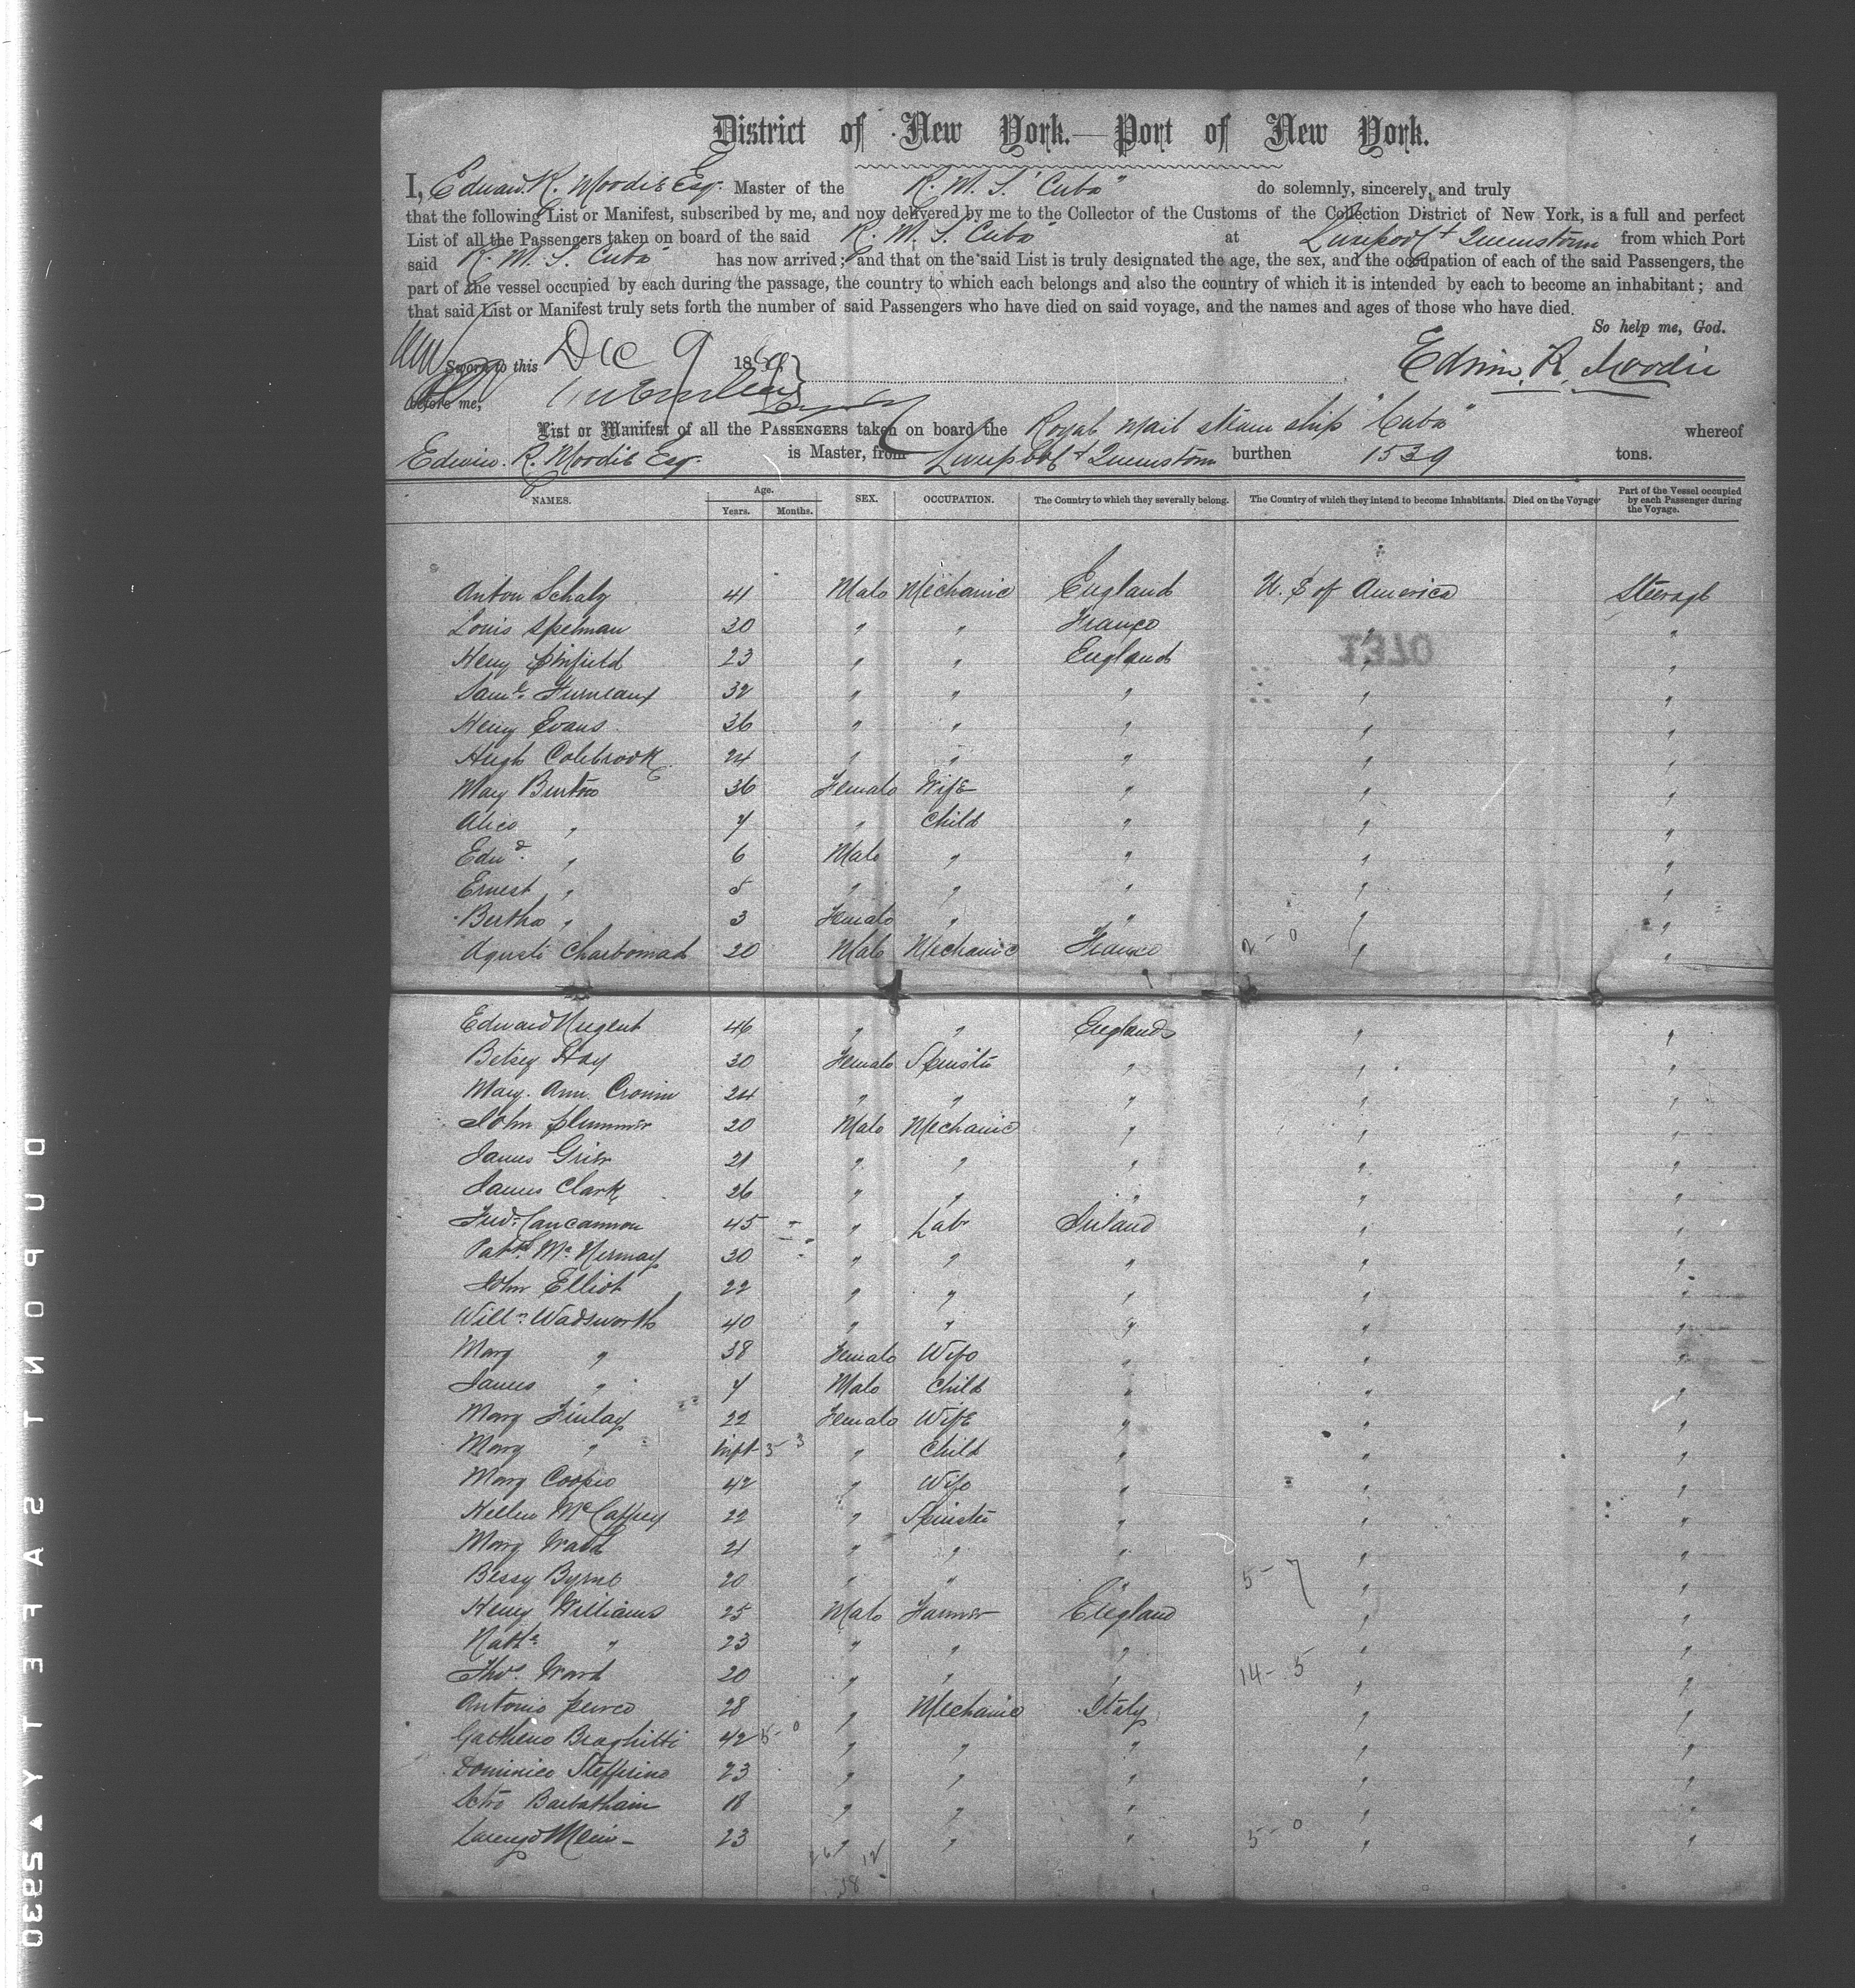 District of New York.—Port of New York.
I, Edward. K. Moodie Esq. Master of the R. M. S. "Cuba" do solemnly, sincerely, and truly
that the following List or Manifest, subscribed by me, and now delivered by me to the Collector of the Customs of the Collection District of New York, is a full and perfect
List of all the Passengers taken on board of the said R. M. S. Cuba" at Liverpool + Queenstown from which Port
said R. M. S. Cuba" has now arrived; and that on the said List is truly designated the age, the sex, and the occupation of each of the said Passengers, the
part of the vessel occupied by each during the passage, the country to which each belongs and also the country of which it is intended by each to become an inhabitant; and
that said List or Manifest truly sets forth the number of said Passengers who have died on said voyage, and the names and ages of those who have died.
So help me, God.
Sworn to this Dec 9 186 Edwin. R. Moodie
before me,
List or Manifest of all the Passengers taken on board the Royal Mail Steam Ship "Cuba" whereof
Edwin. R. Moodie Esq. is Master, from Liverpool + Queenstown burthen 1539 tons.
NAMES. Age. Years. Months. SEX. OCCUPATION. The Country to which they severally belong. The Country of which they intend to become Inhabitants. Died on the Voyage Part of the Vessel occupied by each Passenger during the Voyage.
Anton Schalz 41 Male Mechanic England U. S of America Steerage
Louis Spelman 30 " " France " "
1370
Henry Pinfield 23 " " England " "
Saml. Furneaux 32 " " " " "
Henry Evans 36 " " " " "
Hugh Colebrook 24 " " " " "
Mary Burton 36 Female Wife " " "
Alice " 7 " Child " " "
Edwd. " 6 Male " " " "
Ernest " 5 " " " " "
Bertha " 3 Female " " " "
Agusti Charbomad 20 Male Mechanic France 2 - 0 " "
Edward Nugent 46 " " England " "
Betsey Hay 30 Female Spinster " " "
Mary. Ann. Cronin 24 " " " " "
John Plummer 20 Male Mechanic " " "
James Grier 21 " " " " "
James Clark 26 " " " " "
Fred. Cancannon 45 " Labr Ireland " "
Patk. Mc 30 " " " " "
John Elliot 22 " " " " "
Willm. Wadsworth 40 " " " " "
Mary " 38 Female Wife " " "
James " 7 Male Child " " "
Mary Finlay 22 Female Wife " " "
Mary " Inft 5 3 " Child " " "
Mary Cooper 42 " Wife " " "
Hellen McCaffrey 22 " Spinster " " "
Mary Ward 21 " " " " "
Bessy Byrne 20 " " " 5 - 7 " "
Henry Williams 25 Male Farmer England " "
Nathl. " 23 " " " " "
Thos. Ward 20 " " " 14 - 5 " "
Antonio 28 " Mechanic Italy " "
Braghitti 42 5 - 0 " " " " "
Dominico Stefferino 23 " " " " "
18 " " " " "
Lorenzo 23 " " " 5 - 0 " "
26 12
38
DUPONT SAFETY 0S30